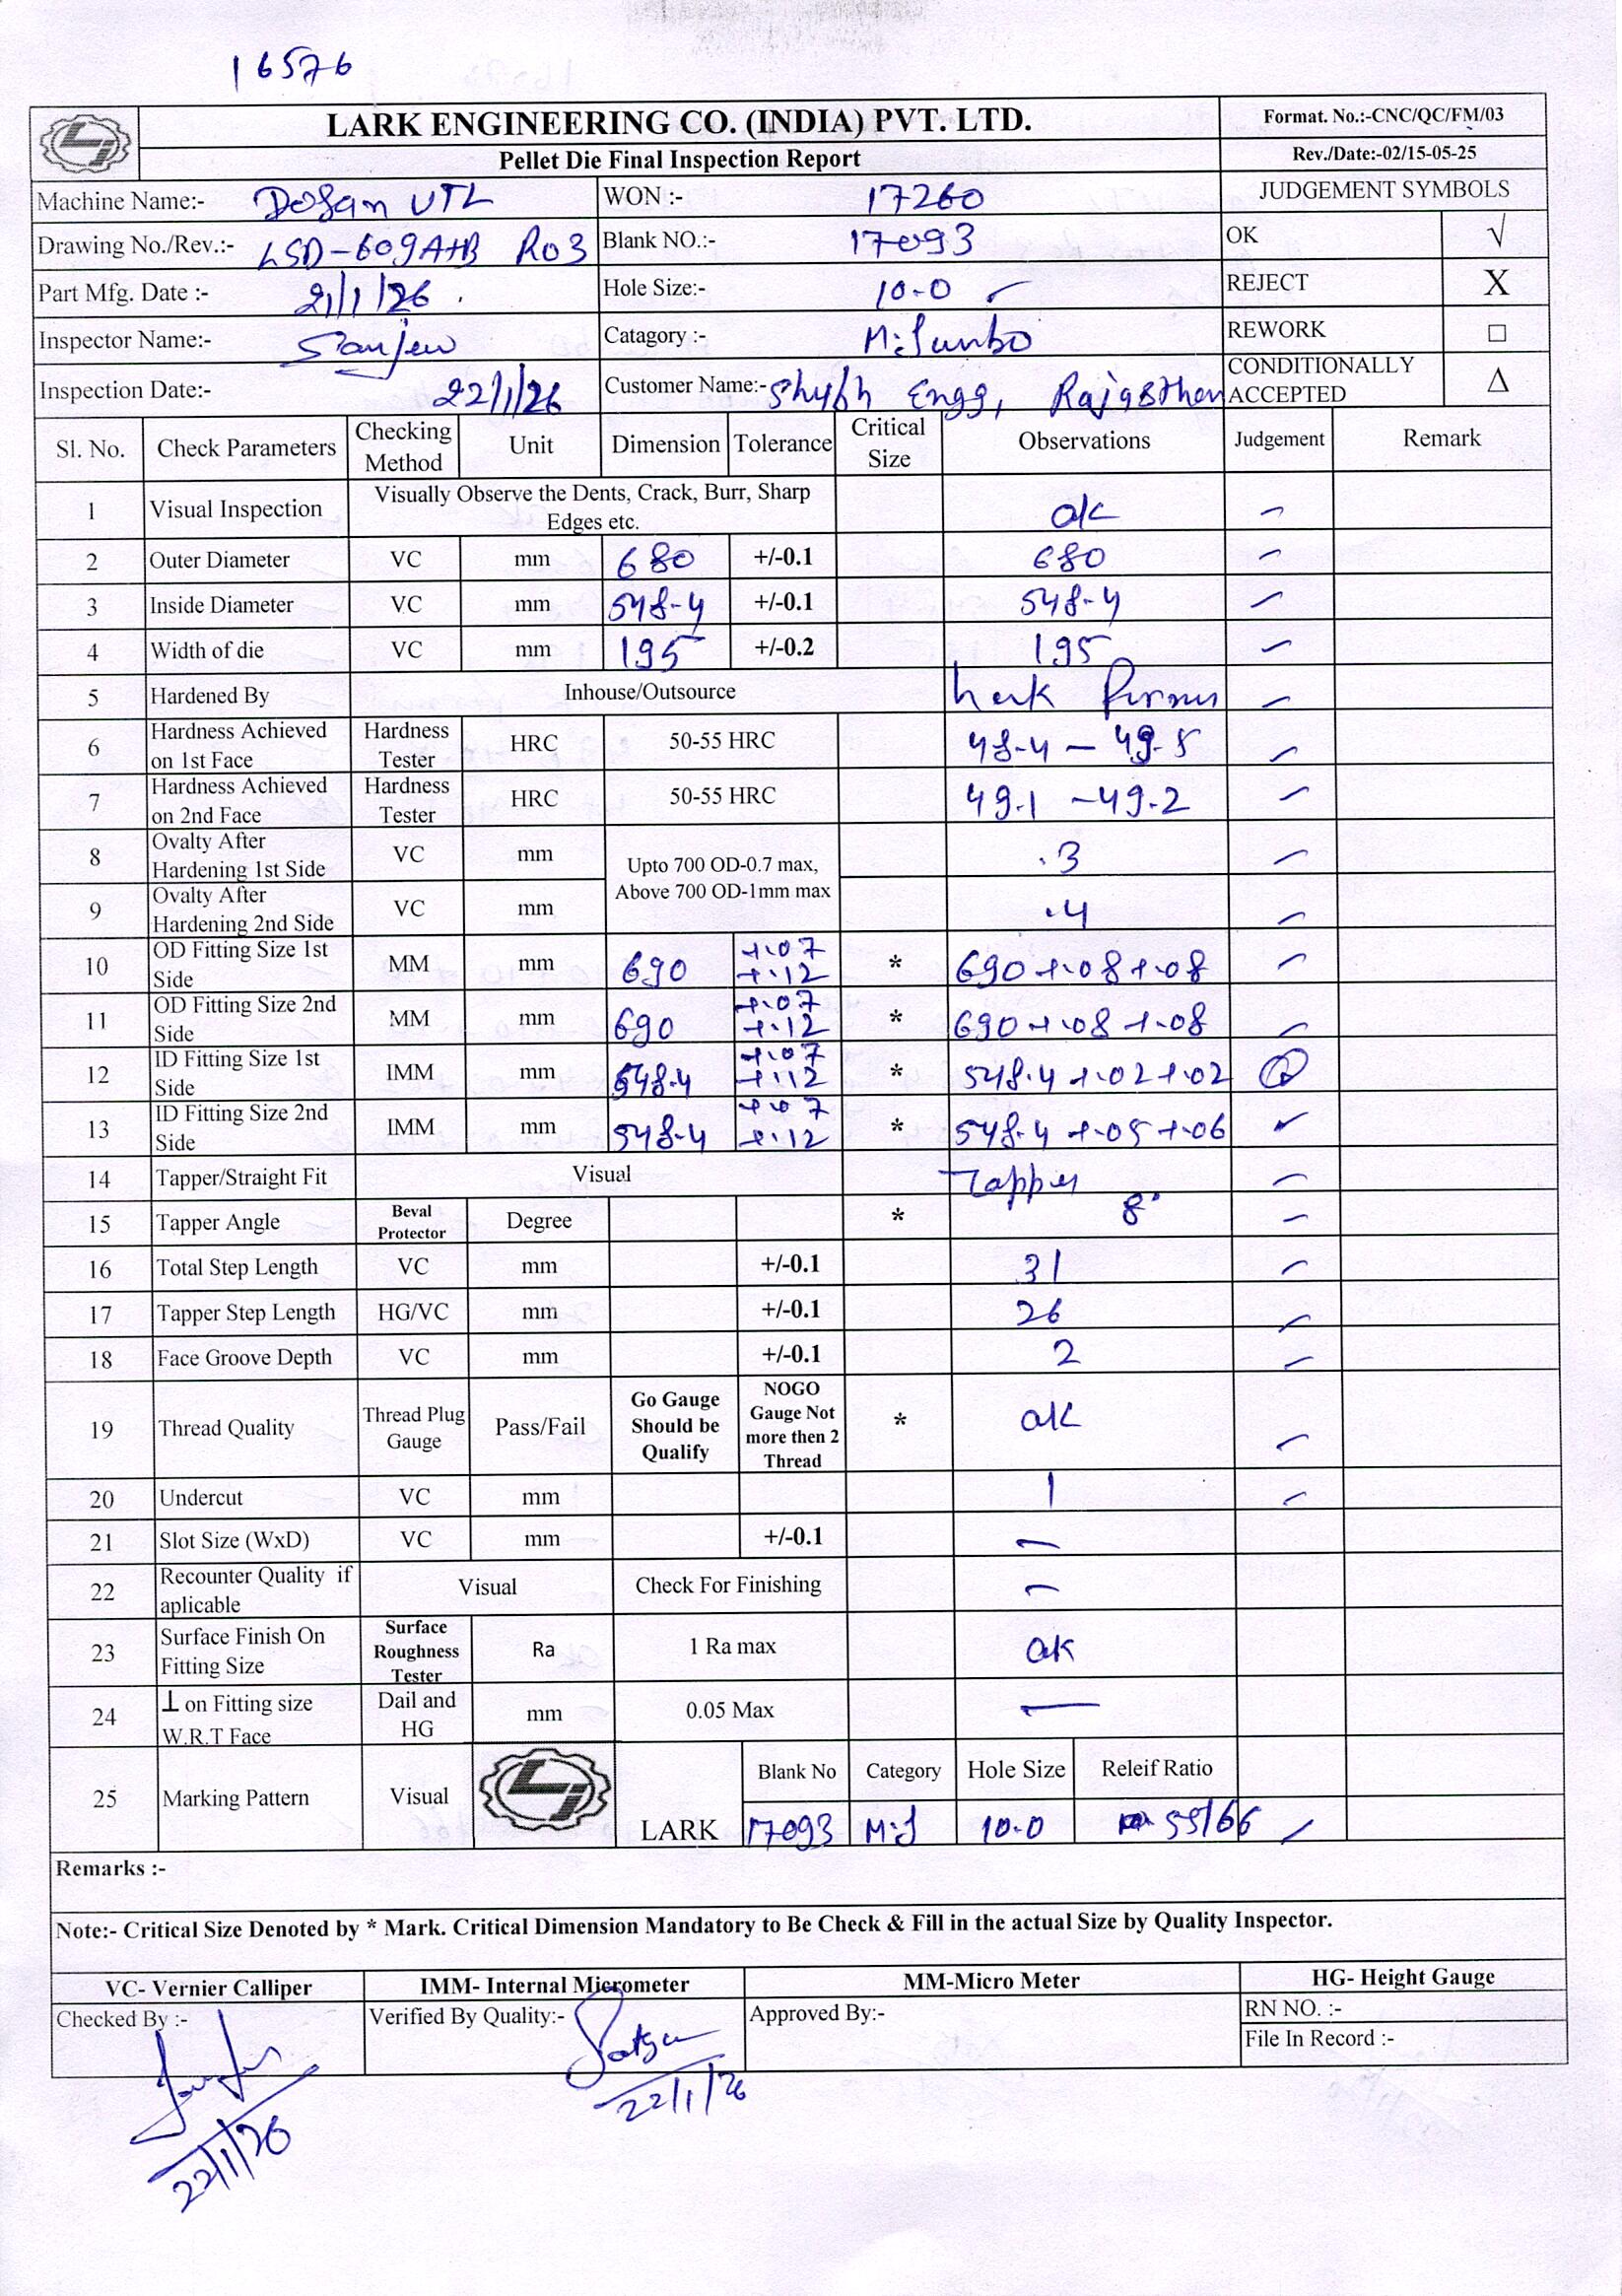 16576
LARK ENGINEERING CO. (INDIA) PVT. LTD.
Format. No.:-CNC/QC/FM/03
Pellet Die Final Inspection Report
Rev./Date:-02/15-05-25
Machine Name:- UTL WON :- 17260 JUDGEMENT SYMBOLS
Drawing No./Rev.:- LSD-609A+B R03 Blank NO.:- 17093 OK √
Part Mfg. Date :- 21/1/26 Hole Size:- 10-0 REJECT X
Inspector Name:- Sanjeev Catagory :- REWORK □
Inspection Date:- 22/1/26 Customer Name:- Engg, Rajasthan CONDITIONALLY ACCEPTED Δ
Sl. No. Check Parameters Checking Method Unit Dimension Tolerance Critical Size Observations Judgement Remark
1 Visual Inspection Visually Observe the Dents, Crack, Burr, Sharp Edges etc. ok
2 Outer Diameter VC mm 680 +/-0.1 680
3 Inside Diameter VC mm 548-4 +/-0.1 548-4
4 Width of die VC mm 195 +/-0.2 195
5 Hardened By Inhouse/Outsource
6 Hardness Achieved on 1st Face Hardness Tester HRC 50-55 HRC 48-4 – 49-5
7 Hardness Achieved on 2nd Face Hardness Tester HRC 50-55 HRC 49.1 – 49.2
8 Ovalty After Hardening 1st Side VC mm Upto 700 OD-0.7 max, Above 700 OD-1mm max .3
9 Ovalty After Hardening 2nd Side VC mm .4
10 OD Fitting Size 1st Side MM mm 690 +.07 +.12 * 690 +.08 +.08
11 OD Fitting Size 2nd Side MM mm 690 +.07 +.12 * 690 +.08 +.08
12 ID Fitting Size 1st Side IMM mm 548.4 +.07 +.12 * 548.4 +.02 +.02
13 ID Fitting Size 2nd Side IMM mm 548-4 +.07 +.12 * 548.4 +.05 +.06
14 Tapper/Straight Fit Visual Tapper
15 Tapper Angle Beval Protector Degree * 8°
16 Total Step Length VC mm +/-0.1 31
17 Tapper Step Length HG/VC mm +/-0.1 26
18 Face Groove Depth VC mm +/-0.1 2
19 Thread Quality Thread Plug Gauge Pass/Fail Go Gauge Should be Qualify NOGO Gauge Not more then 2 Thread * ok
20 Undercut VC mm 1
21 Slot Size (WxD) VC mm +/-0.1 —
22 Recounter Quality if aplicable Visual Check For Finishing —
23 Surface Finish On Fitting Size Surface Roughness Tester Ra 1 Ra max ok
24 ⊥ on Fitting size W.R.T Face Dail and HG mm 0.05 Max —
25 Marking Pattern Visual LARK Blank No Category Hole Size Releif Ratio
17093 M:J 10-0 55/66
Remarks :-
Note:- Critical Size Denoted by * Mark. Critical Dimension Mandatory to Be Check & Fill in the actual Size by Quality Inspector.
VC- Vernier Calliper IMM- Internal Micrometer MM-Micro Meter HG- Height Gauge
Checked By :- Verified By Quality:- Approved By:- RN NO. :-
File In Record :-
22/1/26
22/1/26